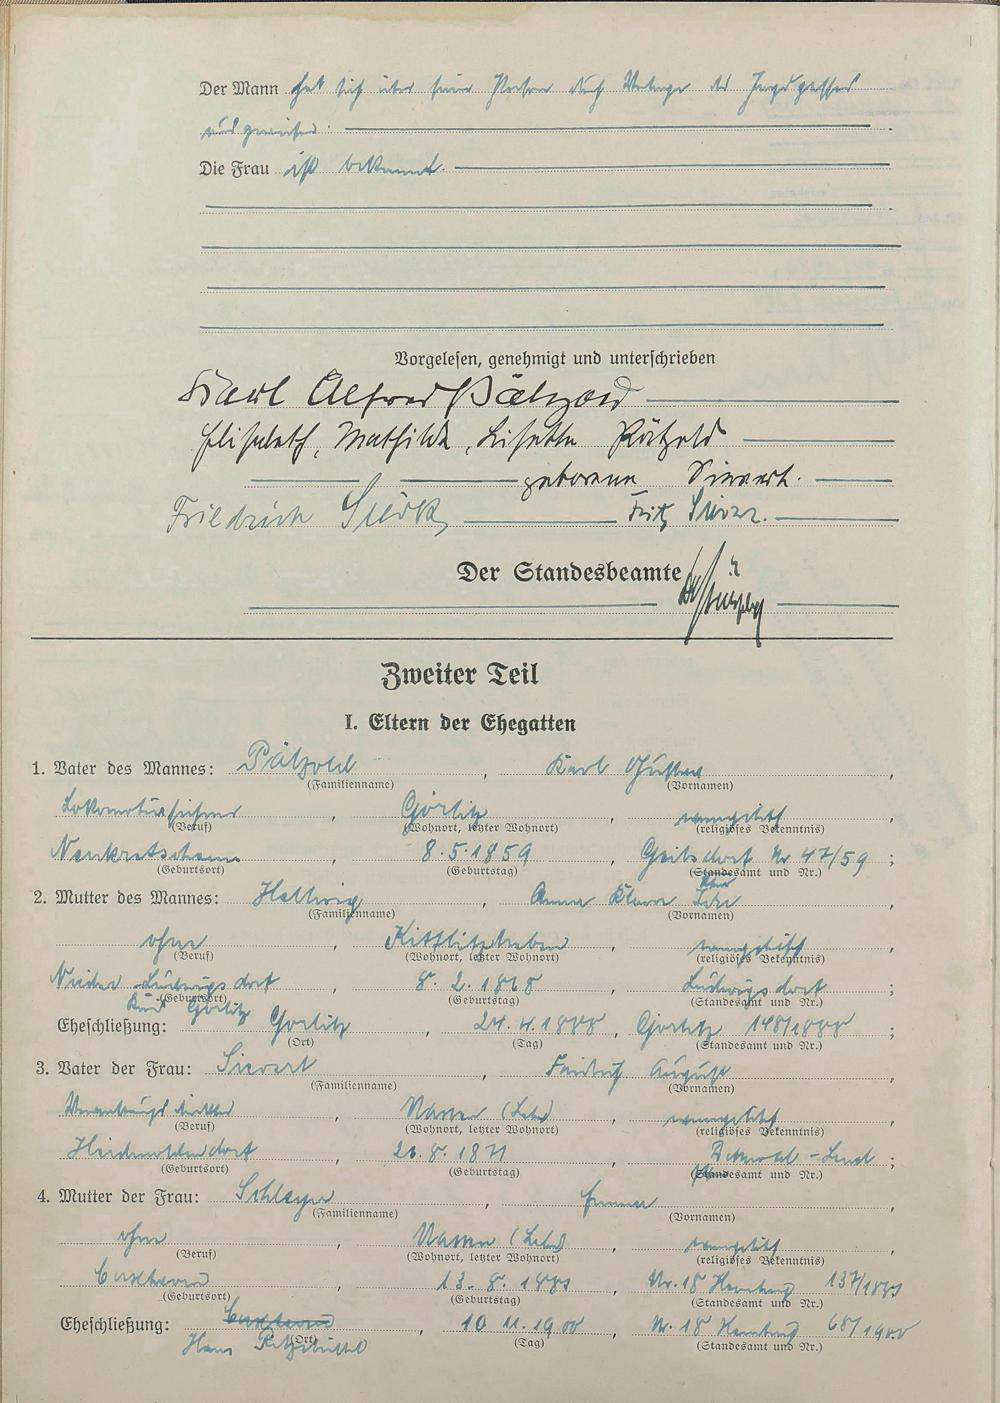 Der Mann hat sich über seine Person durch Vorlage des Jagdpasses
ausgewiesen.
Die Frau ist bekannt.
Vorgelesen, genehmigt und unterschrieben
Karl Alfred Pätzold
Elisabeth, Mathilde, Lisette Pätzold
geborene Sievert.
Friedrich Fritz
Der Standesbeamte
Zweiter Teil
I. Eltern der Ehegatten
1. Vater des Mannes: Pätzold, Karl Gustav,
(Familienname) (Vornamen)
Lokomotivführer, Görlitz, evangelisch,
(Beruf) (Wohnort, letzter Wohnort) (religiöses Bekenntnis)
Neukretscham, 8.5.1859, Nr 47/59;
(Geburtsort) (Geburtstag) (Standesamt und Nr.)
2. Mutter des Mannes: Hellwig, Anna Klara Ida,
(Familienname) (Vornamen)
ohne, Kittlitztreben, evangelisch,
(Beruf) (Wohnort, letzter Wohnort) (religiöses Bekenntnis)
Nieder-Ludwigsdorf, 8. 2. 1868, Ludwigsdorf;
(Geburtsort) (Geburtstag) (Standesamt und Nr.)
Görlitz
Eheschließung: Görlitz, 24. 4. 1888, Görlitz 148/1888;
(Ort) (Tag) (Standesamt und Nr.)
3. Vater der Frau: Sievert, Friedrich August,
(Familienname) (Vornamen)
, evangelisch,
(Beruf) (Wohnort, letzter Wohnort) (religiöses Bekenntnis)
Heidenoldendorf, 8. 1871, Detmold-Land;
(Geburtsort) (Geburtstag) (Standesamt und Nr.)
4. Mutter der Frau: , Emma,
(Familienname) (Vornamen)
ohne, evangelisch,
(Beruf) (Wohnort, letzter Wohnort) (religiöses Bekenntnis)
Cuxhaven, 13. 8. Nr. 18 Hamburg
(Geburtsort) (Geburtstag) (Standesamt und Nr.)
Eheschließung: Cuxhaven, 10 11. 1900, Nr. 18 Hamburg 68/1900
(Ort) (Tag) (Standesamt und Nr.)
Ritzebüttel